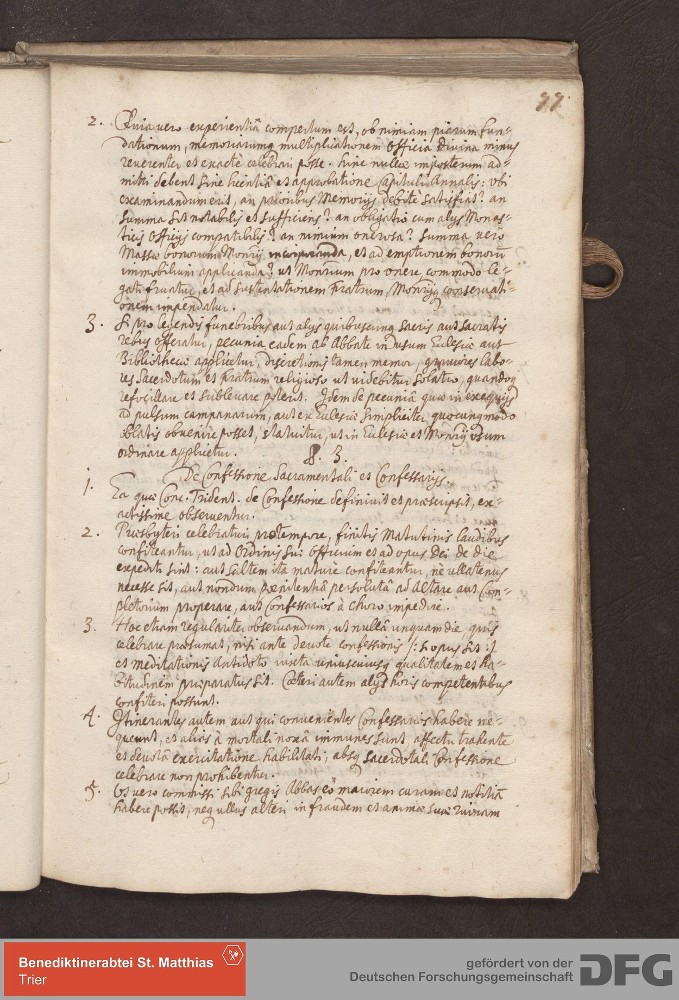 77.
2. Quia vero experientiâ compertum est, ob nimiam piarum fun-
dationum, memoriarumq multiplicationem officia divina minus
reverenter et exactè celebrari posse. hinc nullae imposterum ad-
mitti debent sine licentiâ et approbatione Capituli Annalis: ubi
examinandum erit, an prioribus Memorijs debitè satisfiat? an
summa sit notabilis et sufficiens? an obligatio cum alijs Monas-
ticis Officijs compatibilis? an nimium onerosa? Summa vero
Massae bonorum Monrij incorporanda, et ad emptionem bonorū
immobilium applicanda? ut Monrium pro onere, commodo le-
gati fruatur, et ad sustentationem Fratrum, Monrijq conservati-
onem impendatur.
3. Si pro legendis funebribus aut alijs quibuscunq sacris aut sacratis
rebus offeratur, pecunia eadem ab Abbate in usum Ecclesiae aut
Bibliothecae applicetur, discretionis tamen memor, graviores labo-
res Sacerdotum et Fratrum religioso ut videbitur solatio, quandoq
refocillare et sublevare poterit. Idem de pecuniâ quae in exequijs
ad pulsum campanarum, aut ex Ecclesiae simpliciter quocunq modo
oblatis obvenire posset, statuitur, ut in Ecclesiae et Monrij usum
ordinarie applicetur.
§. 3.
De Confessione Sacramentali et Confessarijs.
1. Ea quae Conc. Trident. de Confessione definivit et praescripsit, ex-
actissime observentur.
2. Praesbyteri celebraturi pro tempore, finitis Matutinis laudibus
confiteantur, ut ad Ordinis sui officium et ad opus Dei de die
expediti sint: aut saltem ita mature confiteantur, ne ullatenus
necesse sit, aut nondum poenitentiâ persolutâ ad Altare aut Com-
pletorium properare, aut Confessarios à choro impedire.
3. Hoc etiam regulariter observandum, ut nullâ unquam die, quis
celebrare praesumat, nisi ante devote confessionis /: si opus sit :/
et meditationis antidoto iuxta uniuscuiusq qualitatem et ha-
bitudinem praeparatus sit. Caeteri autem alijs horis competentibus
confiteri possunt.
4. Itinerantes autem aut qui convenientes Confessarios habere ne-
queunt, et aliàs à mortali noxâ immunes sunt affectu trahente
et devotâ exercitatione habilitati, absq sacerdotali Confessione
celebrare non prohibentur.
5. Ut vero commissi sibi gregis Abbas eò maiorem curam et notitiā
habere possit, neq ullus alteri in fraudem et animae suae ruinam
Benediktinerabtei St. Matthias
Trier
gefördert von der
Deutschen Forschungsgemeinschaft
DFG